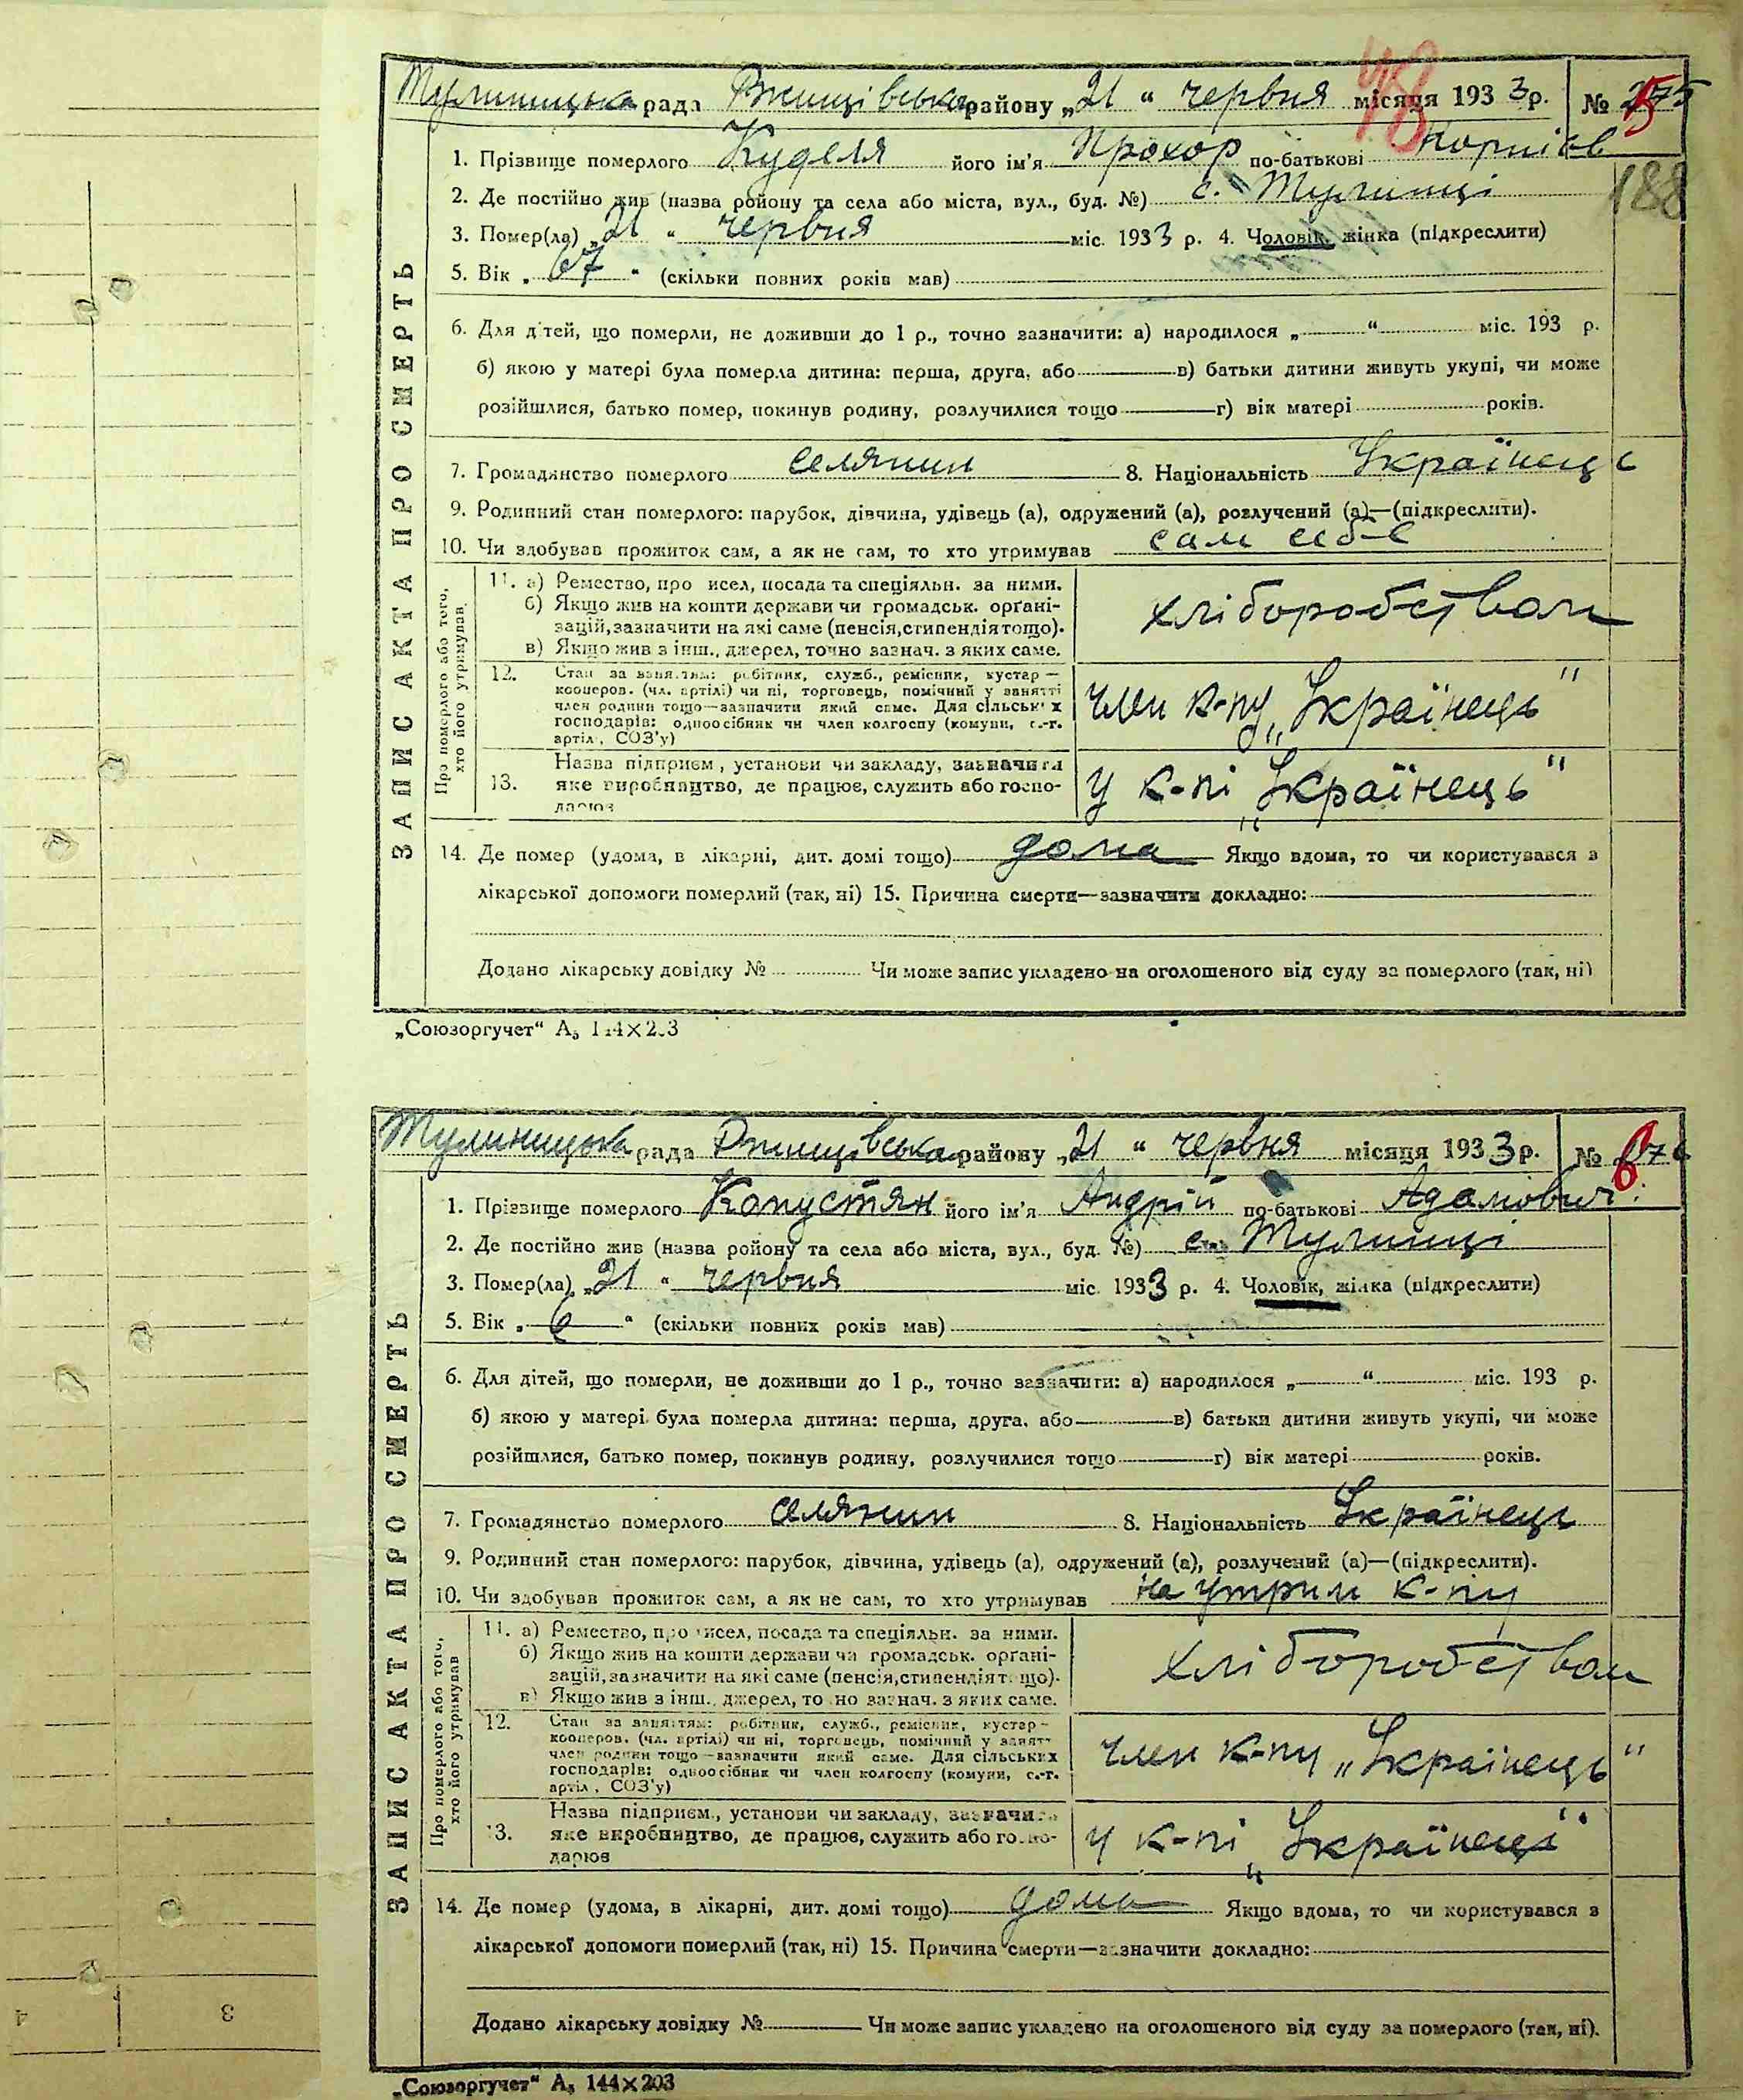 48
Тулиницька рада Ржищівська району „21 “ червня місяця 1933р. № 275
5
188
1. Прізвище померлого Куделя його ім'я Прохор по-батькові Корніїв
2. Де постійно жив (назва ройону та села або міста, вул., буд. №) с. Тулинці
3. Помер(ла) „21 “ червня міс. 1933 р. 4. Чоловік, жінка (підкреслити)
5. Вік „ 67 “ (скільки повних років мав)
6. Для дітей, що померли, не доживши до 1 р., точно зазначити: а) народилося „ “ міс. 193 р.
б) якою у матері була померла дитина: перша, друга, або в) батьки дитини живуть укупі, чи може
розійшлися, батько помер, покинув родину, розлучилися тощо г) вік матері років.
7. Громадянство померлого селянин 8. Національність Українець
9. Родинний стан померлого: парубок, дівчина, удівець (а), одружений (а), розлучений (а)—(підкреслити).
10. Чи здобував прожиток сам, а як не сам, то хто утримував сам себе
ЗАПИС АКТА ПРО СМЕРТЬ
Про померлого або того,
хто його утримував.
11. а) Ремество, про исел, посада та спеціяльн. за ними.
б) Якщо жив на кошти держави чи громадськ. орґані-
зацій, зазначити на які саме (пенсія, стипендія тощо).
в) Якщо жив з інш., джерел, точно зазнач. з яких саме.
хліборобством
12. Стан за заняттям: робітник, служб., ремісник, кустар —
кооперов. (чл. артілі) чи ні, торговець, помічний у занятті
член родини тощо—зазначити який саме. Для сільських
господарів: одноосібник чи член колгоспу (комуни, с.-г.
артіл., СОЗ'у)
член к-пу „Українець"
13. Назва підприєм., установи чи закладу, зазначити
яке виробництво, де працює, служить або госпо-
дарює
у к-пі „Українець"
14. Де помер (удома, в лікарні, дит. домі тощо) дома Якщо вдома, то чи користувався з
лікарської допомоги померлий (так, ні) 15. Причина смерти—зазначити докладно:
Додано лікарську довідку № Чи може запис укладено на оголошеного від суду за померлого (так, ні)
„Союзоргучет“ А₅ 144×203
Тулиницька рада Ржищівська району „21 “ червня місяця 1933р. № 276
6
1. Прізвище померлого Капустян його ім'я Андрій по-батькові Адамович
2. Де постійно жив (назва ройону та села або міста, вул., буд. №) с. Тулинці
3. Помер(ла) „21 “ червня міс. 1933 р. 4. Чоловік, жінка (підкреслити)
5. Вік „ 6 “ (скільки повних років мав)
6. Для дітей, що померли, не доживши до 1 р., точно зазначити: а) народилося „ “ міс. 193 р.
б) якою у матері була померла дитина: перша, друга, або в) батьки дитини живуть укупі, чи може
розійшлися, батько помер, покинув родину, розлучилися тощо г) вік матері років.
7. Громадянство померлого селянин 8. Національність Українець
9. Родинний стан померлого: парубок, дівчина, удівець (а), одружений (а), розлучений (а)—(підкреслити).
10. Чи здобував прожиток сам, а як не сам, то хто утримував на утрим к-пу
ЗАПИС АКТА ПРО СМЕРТЬ
Про померлого або того,
хто його утримував
11. а) Ремество, про исел, посада та спеціяльн. за ними.
б) Якщо жив на кошти держави чи громадськ. орґані-
зацій, зазначити на які саме (пенсія, стипендія тощо).
в) Якщо жив з інш., джерел, точно зазнач. з яких саме.
хліборобством
12. Стан за заняттям: робітник, служб., ремісник, кустар —
кооперов. (чл. артілі) чи ні, торговець, помічний у занятт
член родини тощо—зазначити який саме. Для сільських
господарів: одноосібник чи член колгоспу (комуни, с.-г.
артіл., СОЗ'у)
член к-пу „Українець"
13. Назва підприєм., установи чи закладу, зазначити
яке виробництво, де працює, служить або госпо-
дарює
у к-пі „Українець"
14. Де помер (удома, в лікарні, дит. домі тощо) дома Якщо вдома, то чи користувався з
лікарської допомоги померлий (так, ні) 15. Причина смерти—зазначити докладно:
Додано лікарську довідку № Чи може запис укладено на оголошеного від суду за померлого (так, ні).
„Союзоргучет“ А₅ 144×203
4 3